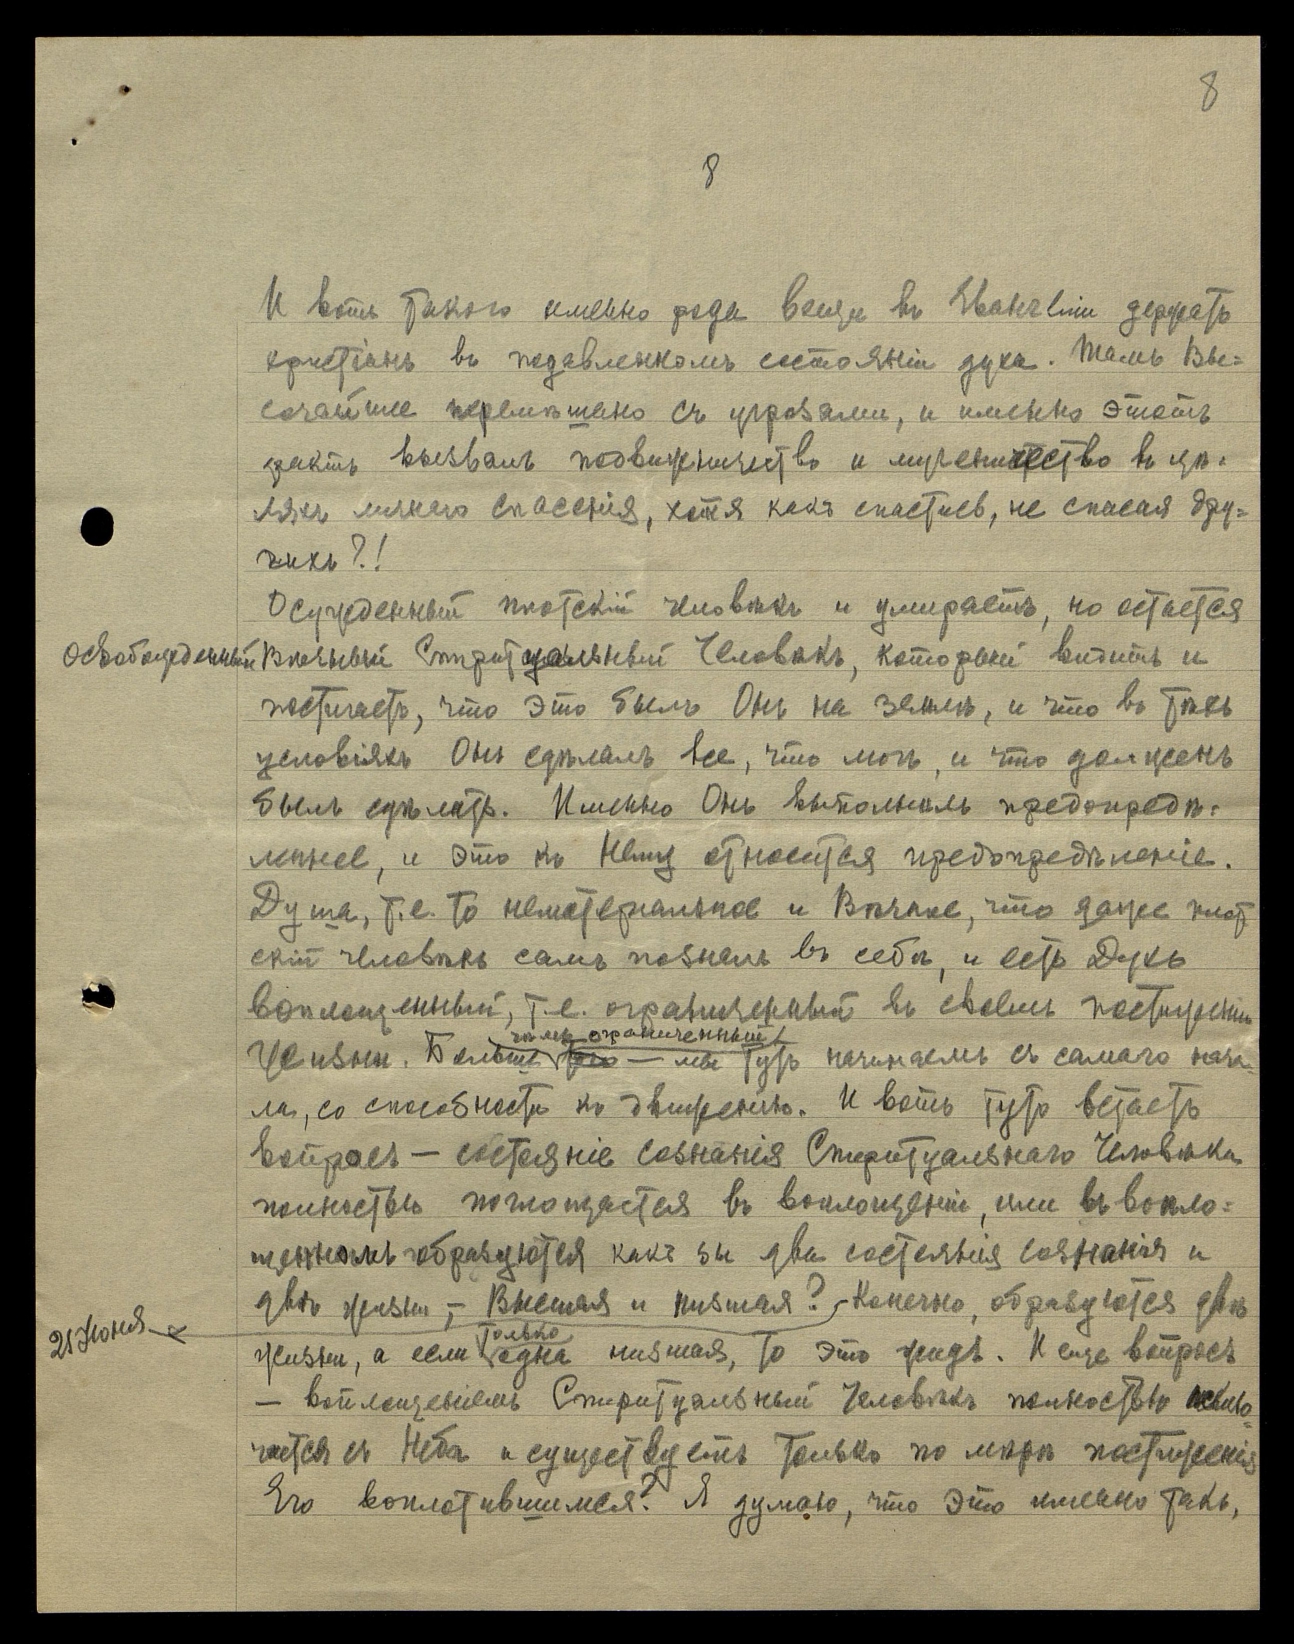 8
8
И вотъ такого именно рода вещи въ Евангелiи держатъ
христiанъ въ подавленномъ состоянiи духа. Тамъ Вы=
сочайшее перемѣшано съ угрозами, и именно этотъ
фактъ вызвалъ подвижничество и мученичество въ цѣ=
ляхъ личнаго спасенiя, хотя какъ спастись, не спасая дру=
гихъ?!
Осужденный плотскiй человѣкъ и умираетъ, но остается
освобожденный Вѣчный Спиритуальный Человѣкъ, который видитъ и
постигаетъ, что это былъ Онъ на землѣ, и что въ тѣхъ
условiяхъ Онъ сдѣлалъ все, что могъ, и что долженъ
былъ сдѣлать. Именно Онъ выполнилъ предопредѣ=
ленное, и это къ Нему относится предопредѣленiе.
Душа, т.е. то нематерiальное и Вѣчное, что даже плот
скiй человѣкъ самъ позналъ въ себѣ, и есть Духъ
воплощенный, т.е. ограниченный въ своемъ постиженiи
чѣмъ ограниченный
Жизни. Больше того — мы тутъ начинаемъ съ самаго нача=
ла, со способности къ движенiю. И вотъ тутъ встаетъ
вопросъ — состоянiе сознанiя Спиритуальнаго Человѣка
полностью поглощается въ воплощенiи, или въ вопло=
щенномъ образуются какъ бы два состоянiя сознанiя и
двѣ жизни, — Высшая и низшая? Конечно, образуются двѣ
21 Iюня
только
жизни, а если одна низшая, то это жидъ. И еще вопросъ
— воплощенiемъ Спиритуальный Человѣкъ полностью исклю=
чается съ Неба и существуетъ только по мѣрѣ постиженiя
Его воплотившимся? Я думаю, что это именно такъ,